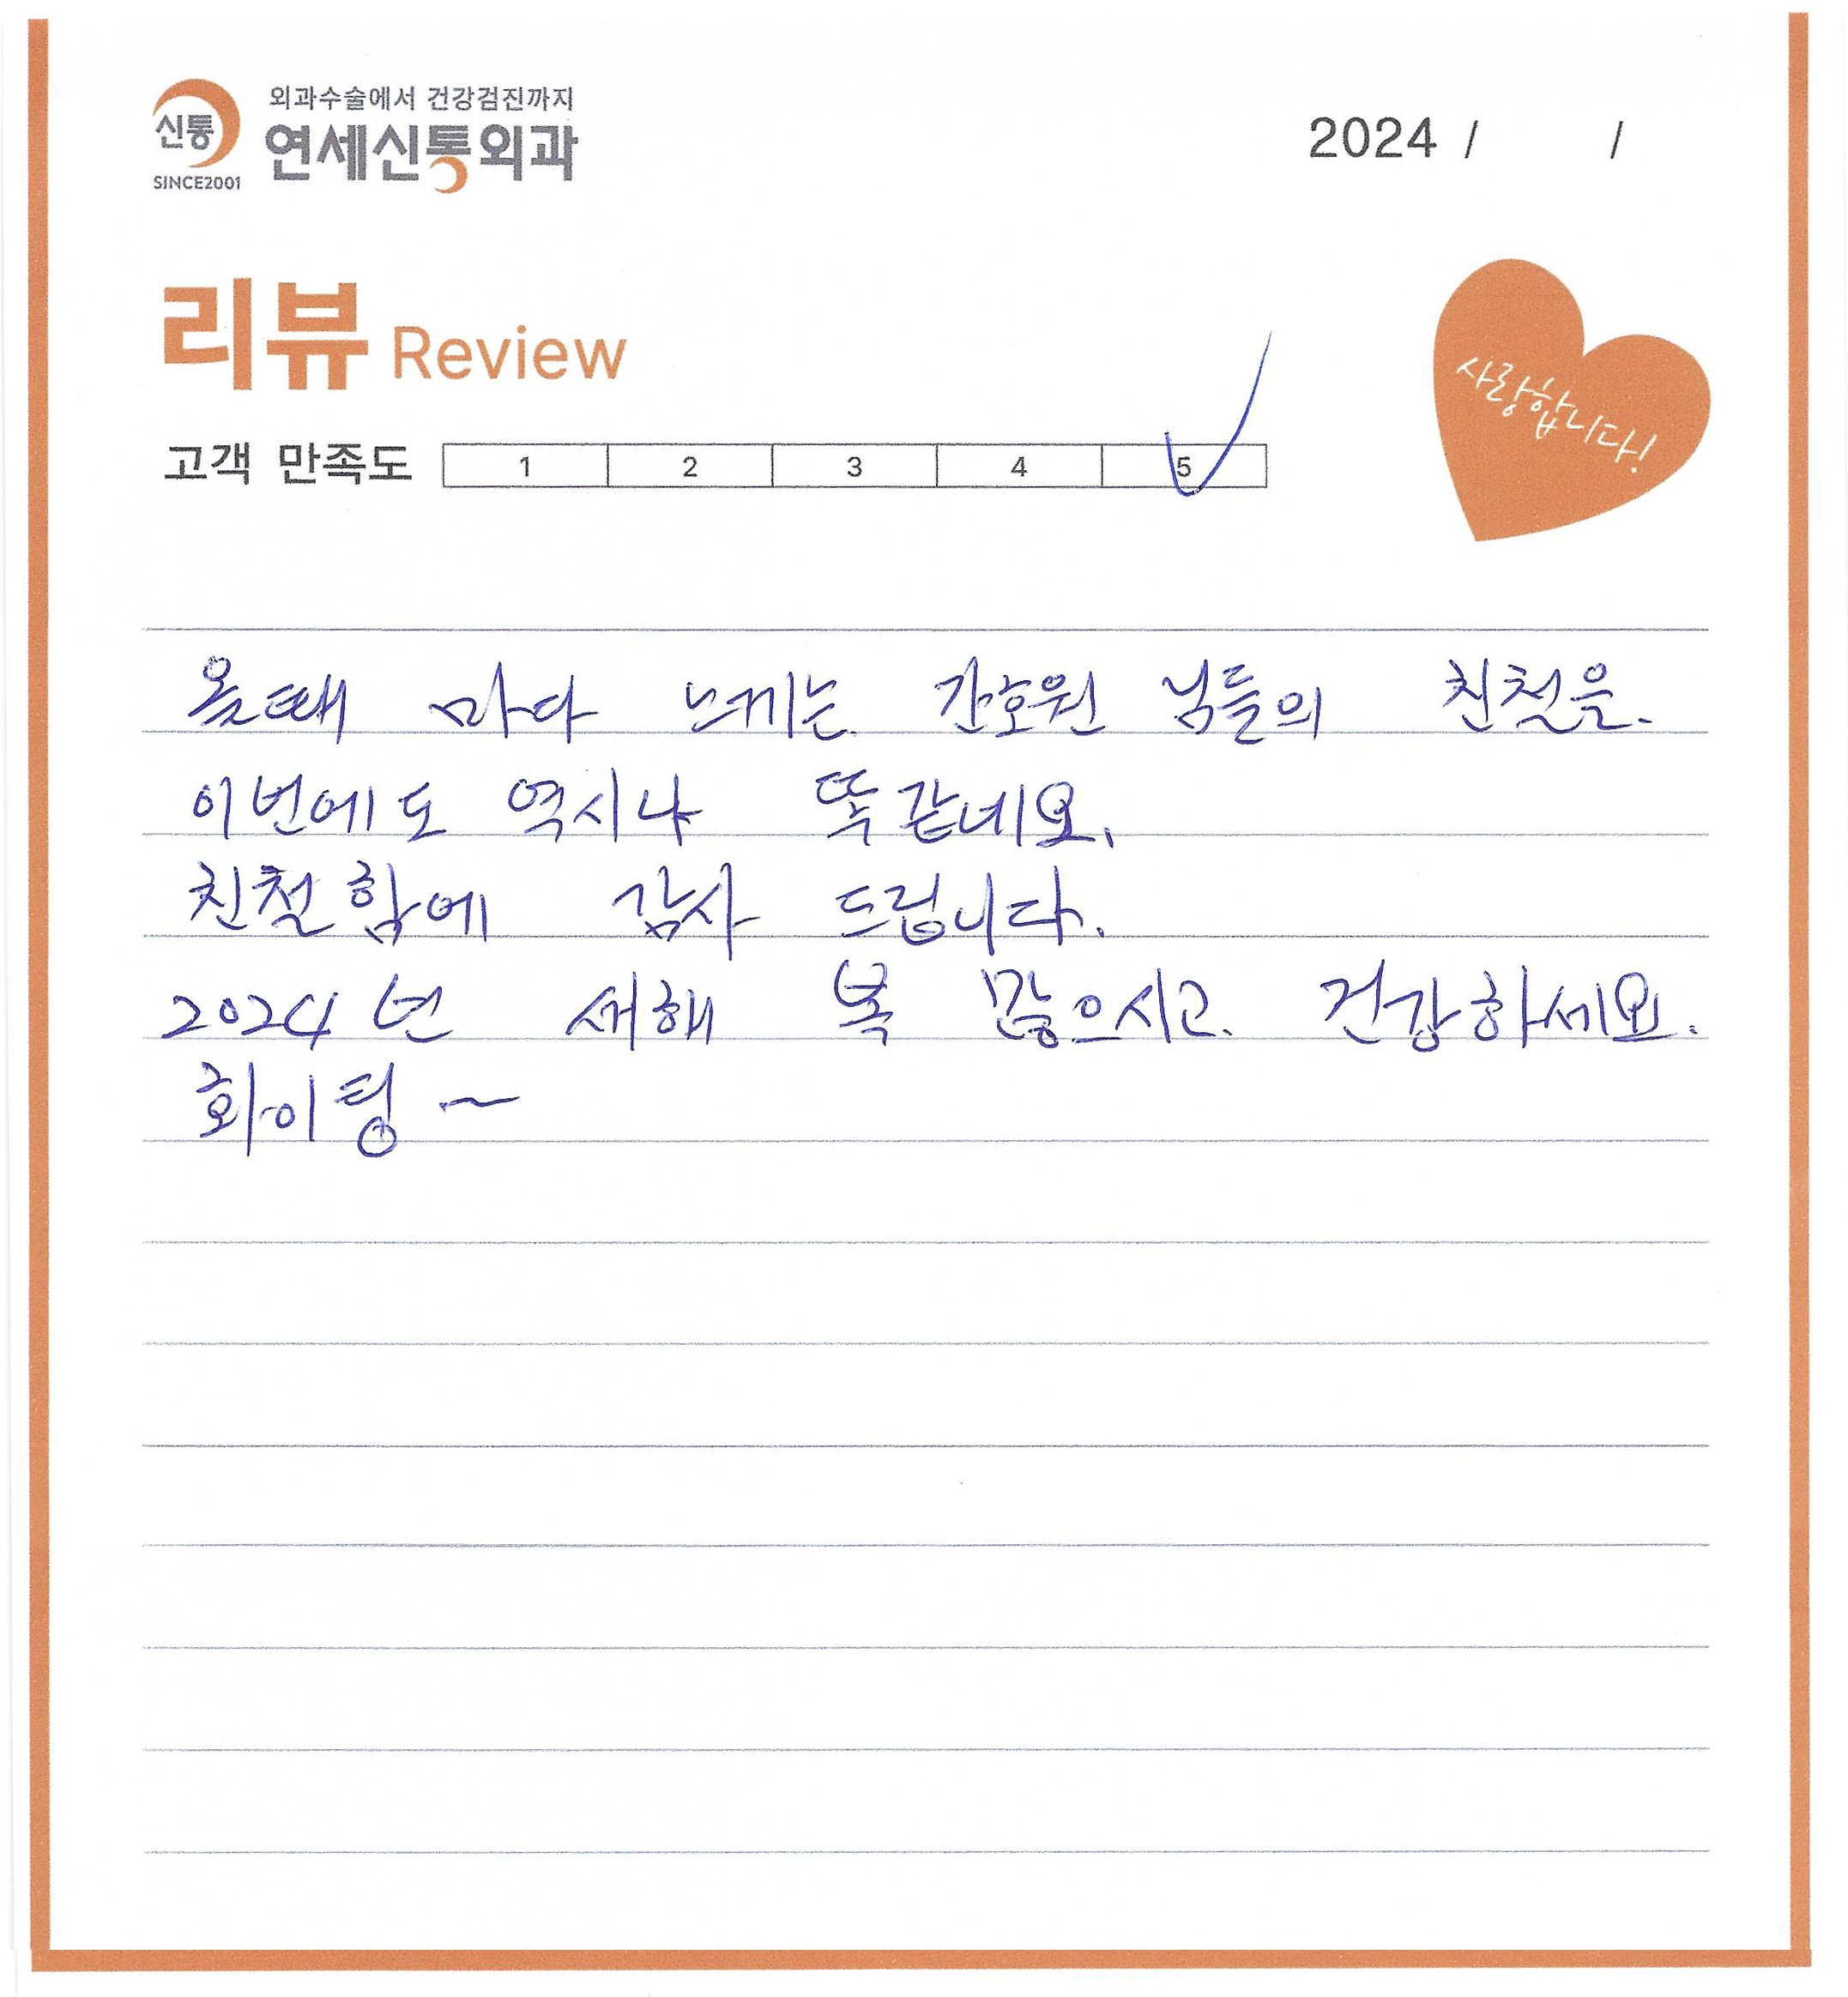 외과수술에서 건강검진까지
신통 연세신통외과
SINCE2001
2024 / /
리뷰 Review
사랑합니다!
고객 만족도 1 2 3 4 5
올때 마다 느끼는 간호원 님들의 친철은.
이번에도 역시나 똑같네요.
친철함에 감사 드립니다.
2024년 새해 복 많으시고. 건강하세요.
화이팅~